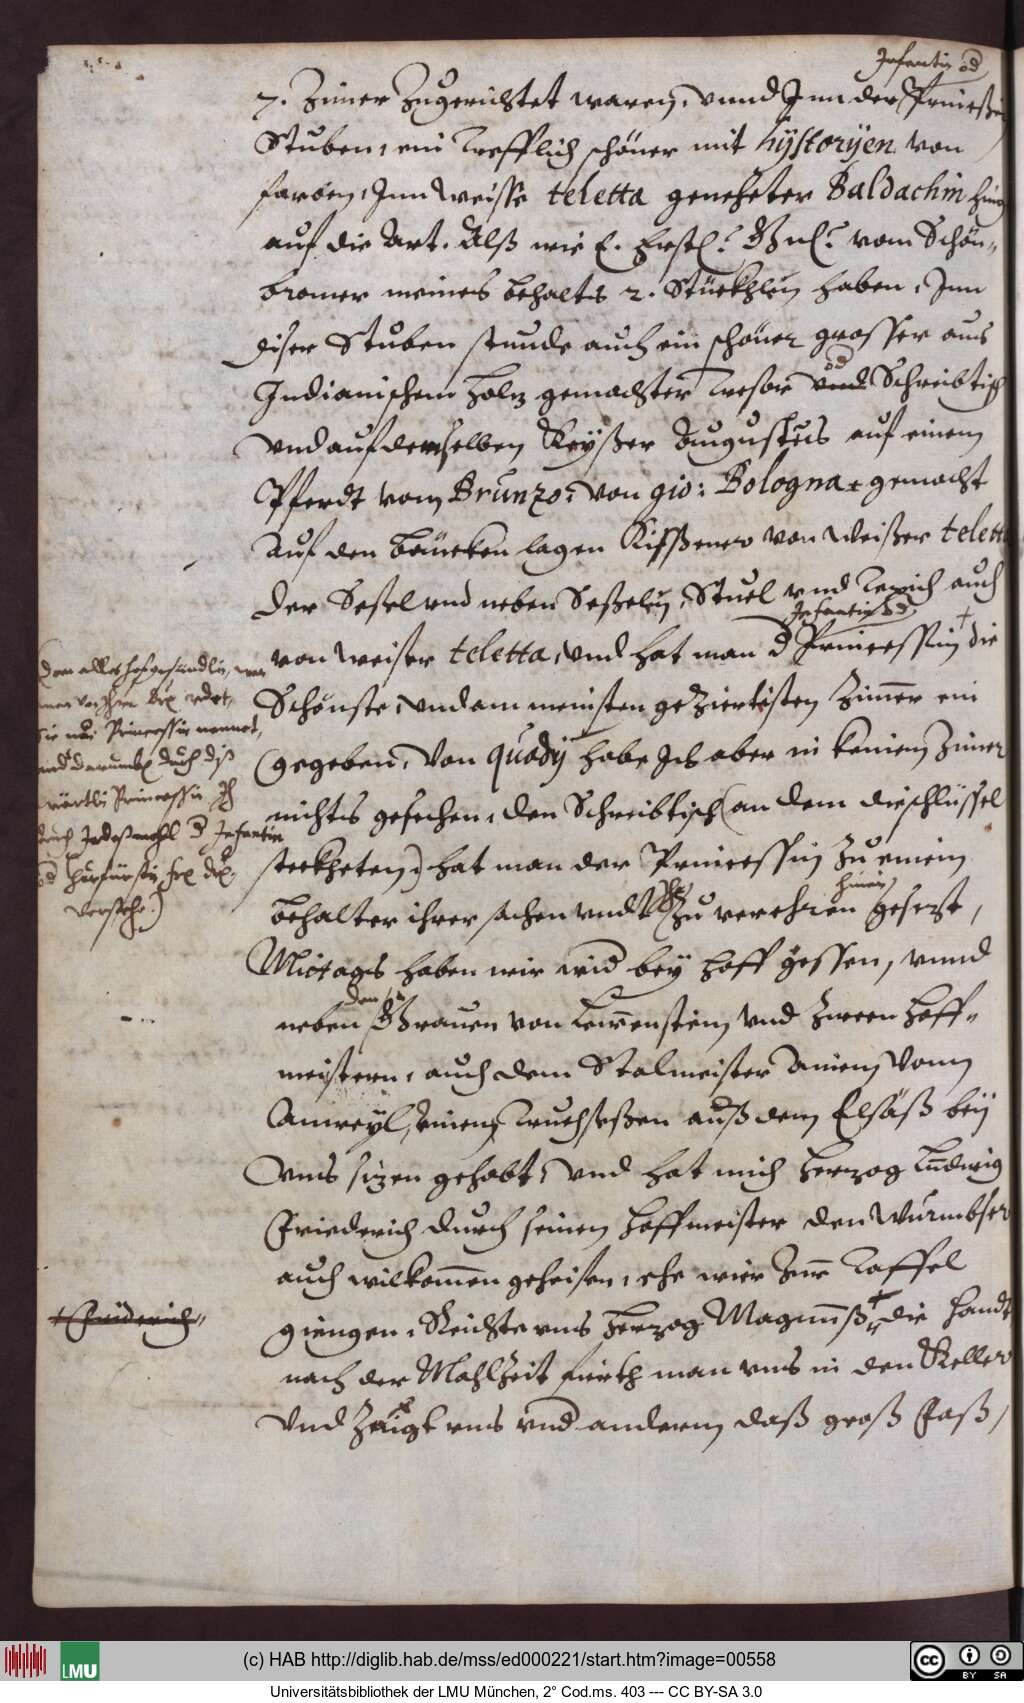 Infantin od
7. Zimer Zugerichtet waren, vnnd Inn der Princeßin
Stuben, ein trefflich schöner mit hÿstorÿen von
farben, Inn weisse teletta geneheter Baldachin hing
auf die Art. Alß wie E. frstl: Gnl: vom Schön-
bromer meines behalts 2. Stückhlin haben, Inn
diser Stuben stunde auch ein schöner grosser aus
Indianischem holz gemachter tresor vnd od Schreibtisch
vnd auf demselben Keÿßer Augustus auf einem
Pferdt vom Brunzo, von gio: Bologna gemacht
Auf den bäncken lagen Kißßener von weißer teletta
der Sessel vnd neben Seßelin, Stuel vnd Tepich auch
Infantin od
von weiser teletta, vnd hat man d Princessin die
Schönste, vnd am meinsten geziertisten Zimmer ein
gegeben, Von quadÿ habe Ich aber in keinem Zimer
nichts gesechen, den Schreibtisch (an dem die schlüssel
steckheten) hat man der Princessin zu einem
behalter ihrer sachen vndt zu verehren hinein gesezt,
Mittags haben wir wid bey hoff gessen, vnnd
neben den Grauen von Lewenstein, vnd zween hoff-
meistern, auch dem Stalmeister einem vonn
Amweÿl, einem Truchseßen auß dem Elsäß beÿ
vns sizen gehabt, vnd hat mich Herzog Ludwig
Friederich durch seinen hoffmeister den Wurmbser
auch wilkommen geheisen, ehe wier zur Taffel
giengen, Reichte vns Herzog Magnuß die handt
nach der Mahlzeit fürth man vns in den Keller
Vnd zaigt vns vnd anderm daß groß Faß,
Dem alles hofgesündlin, wan
man von Ihrer Dcl redet,
sie nur Princessin nennet,
vnd darumb durch diß
wörtlin Princessin Ich
durch Jedeßmahl d Infantin
od Churfürstin frl dcl.
verstehe.)
Friderich
(c) HAB http://diglib.hab.de/mss/ed000221/start.htm?image=00558
LMU
cc BY SA
Universitätsbibliothek der LMU München, 2° Cod.ms. 403 --- CC BY-SA 3.0